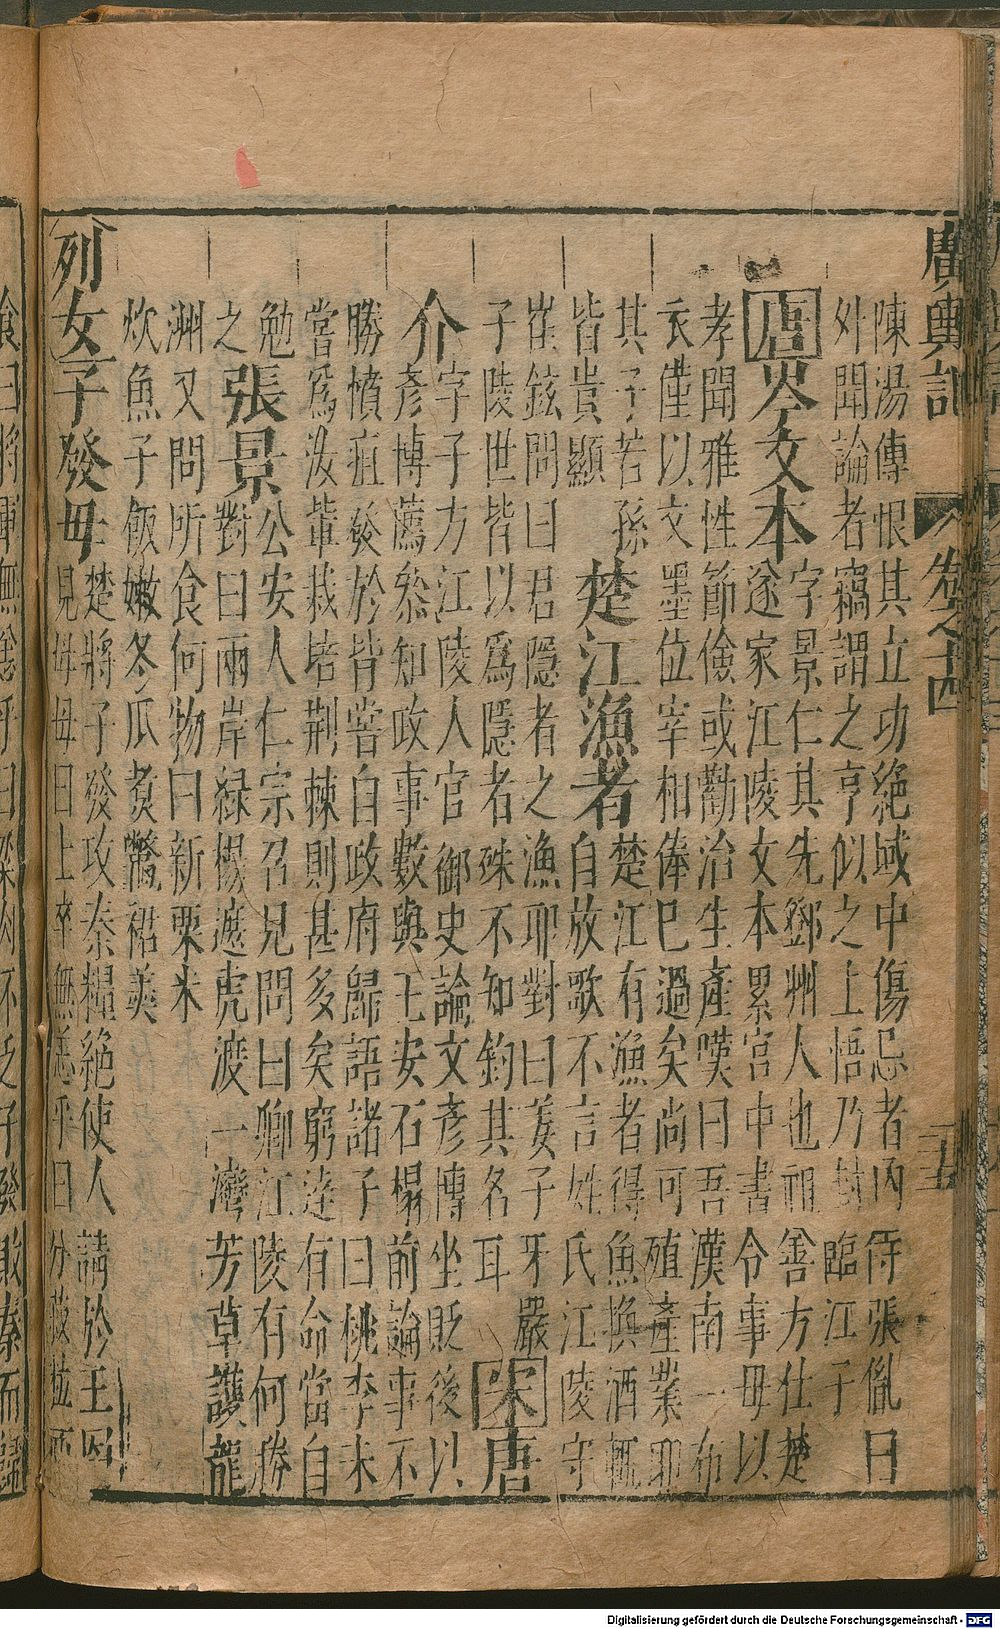 廣輿記
卷之十四
二十五
陳湯傳恨其立功絶域中傷忌者丙侍張胤日
外聞論者竊謂之亨似之上悟乃封臨江子
唐岑文本字景仁其先鄧州人也祖善方仕楚
遂家江陵文本累官中書令事母以
孝聞雅性節儉或勸治生產嘆曰吾漢南一布
衣僅以文墨位宰相俸已過矣尚可殖產業耶
其子若孫
皆貴顯
楚江漁者楚江有漁者得魚換酒輒
自放歌不言姓氏江陵守
崔鉉問曰君隱者之漁耶對曰姜子牙嚴
子陵世皆以為隱者殊不知釣其名耳
宋唐
介字子方江陵人官御史論文彥博坐貶後以
彥博薦叅知政事數與王安石榻前論事不
勝憤疽發於背嘗自政府歸語諸子曰桃李未
嘗爲汝輩栽培荆棘則甚多矣窮逹有命當自
勉
張景公安人仁宗召見問曰卿江陵有何勝
之
對曰兩岸緑楊遮虎渡一灣芳草護龍
洲又問所食何物曰新粟米
炊魚子飯嫩冬瓜煑鱉裙羙
列女子發母楚將子發攻秦糧絶使人請於王因
見母母曰士卒無恙乎曰分菽粒而
食曰將軍無恙乎曰粱肉不乏子發敗秦而歸
Digitalisierung gefördert durch die Deutsche Forschungsgemeinschaft - DFG